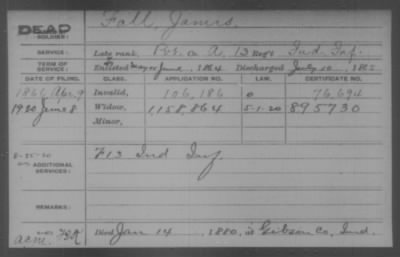 DEAD
SOLDIER:
Fall, James,
SERVICE:
Late rank, Pvt. Co A, 13 Reg't Ind. Inf.
TERM OF SERVICE:
Enlisted June, 1864 Discharged July 10, 1865
DATE OF FILING. CLASS. APPLICATION NO. LAW. CERTIFICATE NO.
1866 Apr. 9 Invalid, 106,186 0 76,694
1920 June 8 Widow, 1,158,864 5-1-20 895730
Minor,
8-25-20
ADDITIONAL SERVICES:
F 13 Ind Inf.
REMARKS:
Died Jan 14 1880, at Gibson Co, Ind.